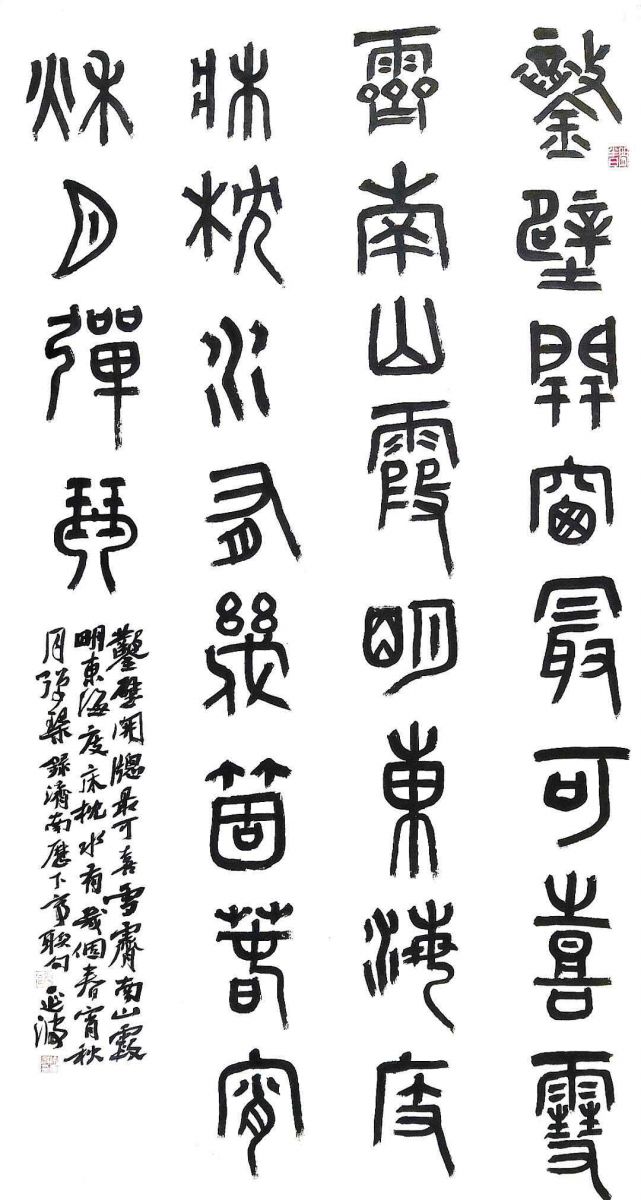 鑿壁開窗最可喜雪
霽南山霞明東海度
牀枕水有幾箇春宵
秋月彈琴
鑿壁開牕最可喜雪霽南山霞
明東海度床枕水有幾個春宵秋
月彈琴錄濟南歷下亭聯句